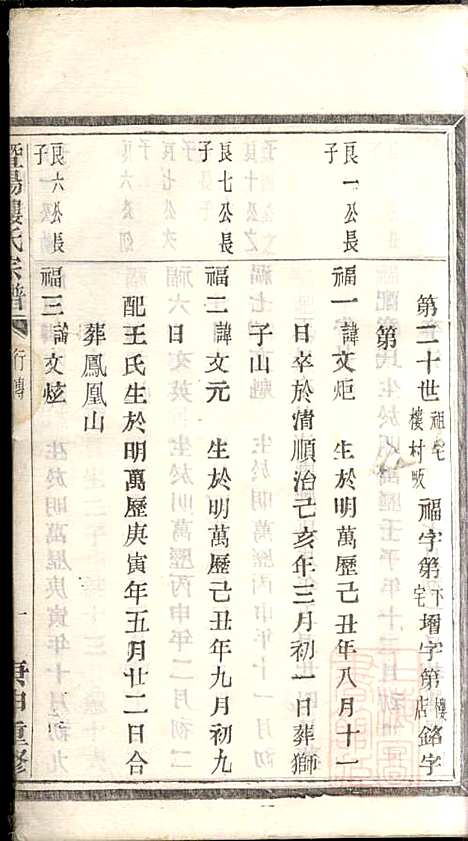 第二十世 祖宅樓村畈 福字第 下宅 壻字第 樓店 銘字
第
良一公長子
福一諱文炬 生於明萬歷己丑年八月十一
日卒於清順治己亥年三月初一日葬獅
子山
良七公長子
福二諱文元 生於明萬歷己丑年九月初九
日
配王氏生於明萬歷庚寅年五月廿二日合
葬鳳凰山
良六公長子
福三諱文炫
暨陽樓氏宗譜 行傳 一 重修